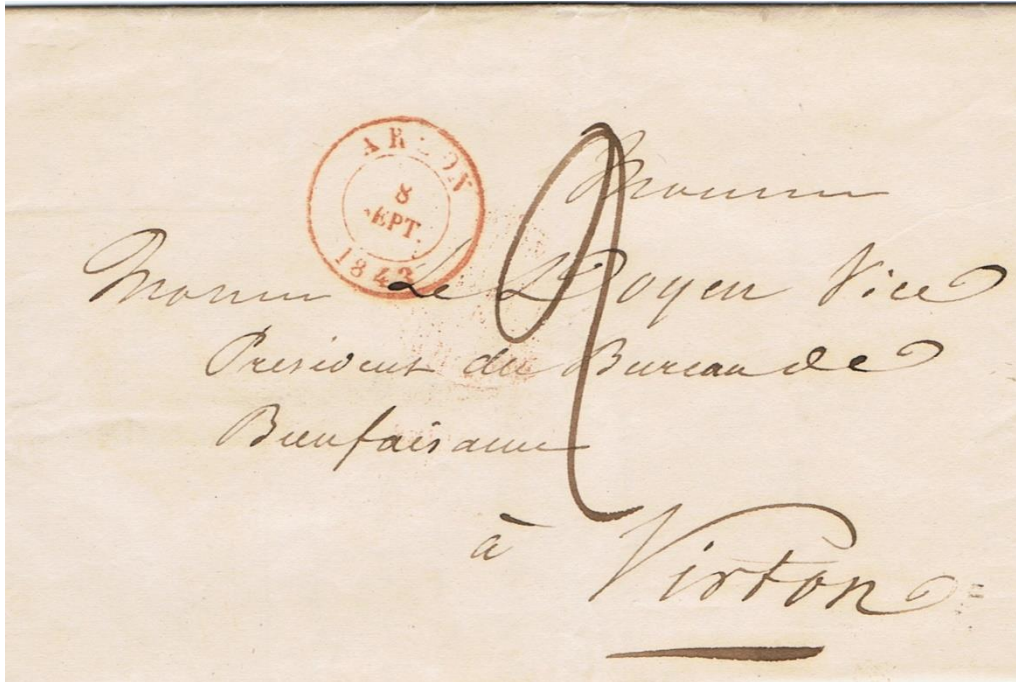 ARLON
8
SEPT.
1843
Monsieur
Monsieur Le Doyen Vice
President du Bureau de
Bienfaisance
à Virton
2